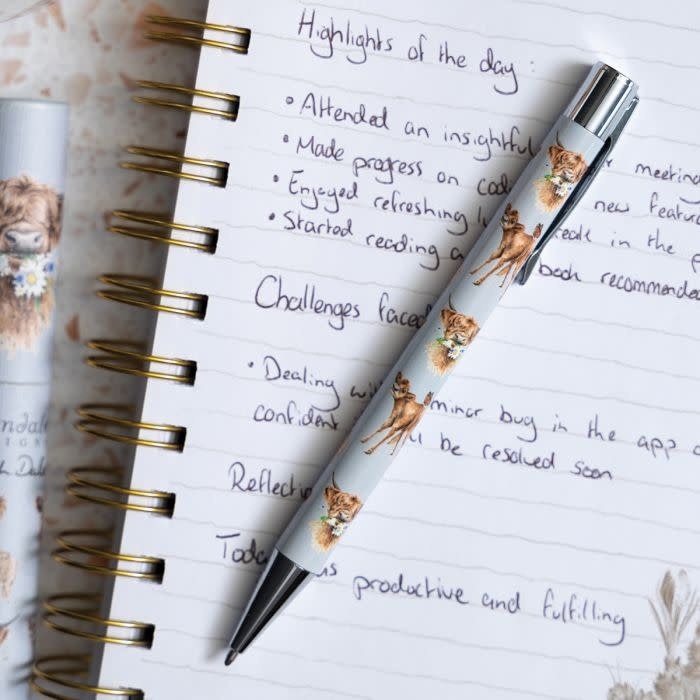 Highlights of the day :
• Attended an insightful meeting
• Made progress on new
• Enjoyed refreshing in the
• Started reading a book recommended
Challenges faced
• Dealing minor bug in the app
confident be resolved soon
Today productive and fulfilling